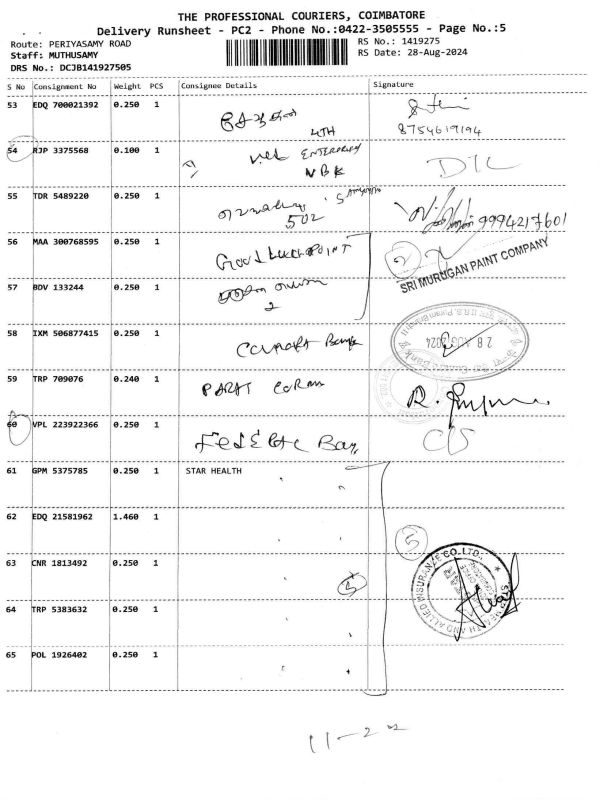 THE PROFESSIONAL COURIERS, COIMBATORE
Delivery Runsheet - PC2 - Phone No.:0422-3505555 - Page No.:5
Route: PERIYASAMY ROAD
RS No.: 1419275
Staff: MUTHUSAMY
RS Date: 28-Aug-2024
DRS No.: DCJB141927505
S No Consignment No Weight PCS Consignee Details Signature
53 EDQ 700021392 0.250 1
4TH 8754619194
54 RJP 3375568 0.100 1 ENTERPRISES
NBK D/L
55 TDR 5489220 0.250 1
502 9994217601
56 MAA 300768595 0.250 1 Good Luck POINT 2
SRI MURUGAN PAINT COMPANY
57 BDV 133244 0.250 1
2
58 IXM 506877415 0.250 1 Canara Bank
28 AUG 2024
59 TRP 709076 0.240 1 PARAT
60 VPL 223922366 0.250 1 Federal Bank C/S
61 GPM 5375785 0.250 1 STAR HEALTH
62 EDQ 21581962 1.460 1
5
63 CNR 1813492 0.250 1 5
STAR HEALTH AND ALLIED INSURANCE CO. LTD.
64 TRP 5383632 0.250 1
65 POL 1926402 0.250 1